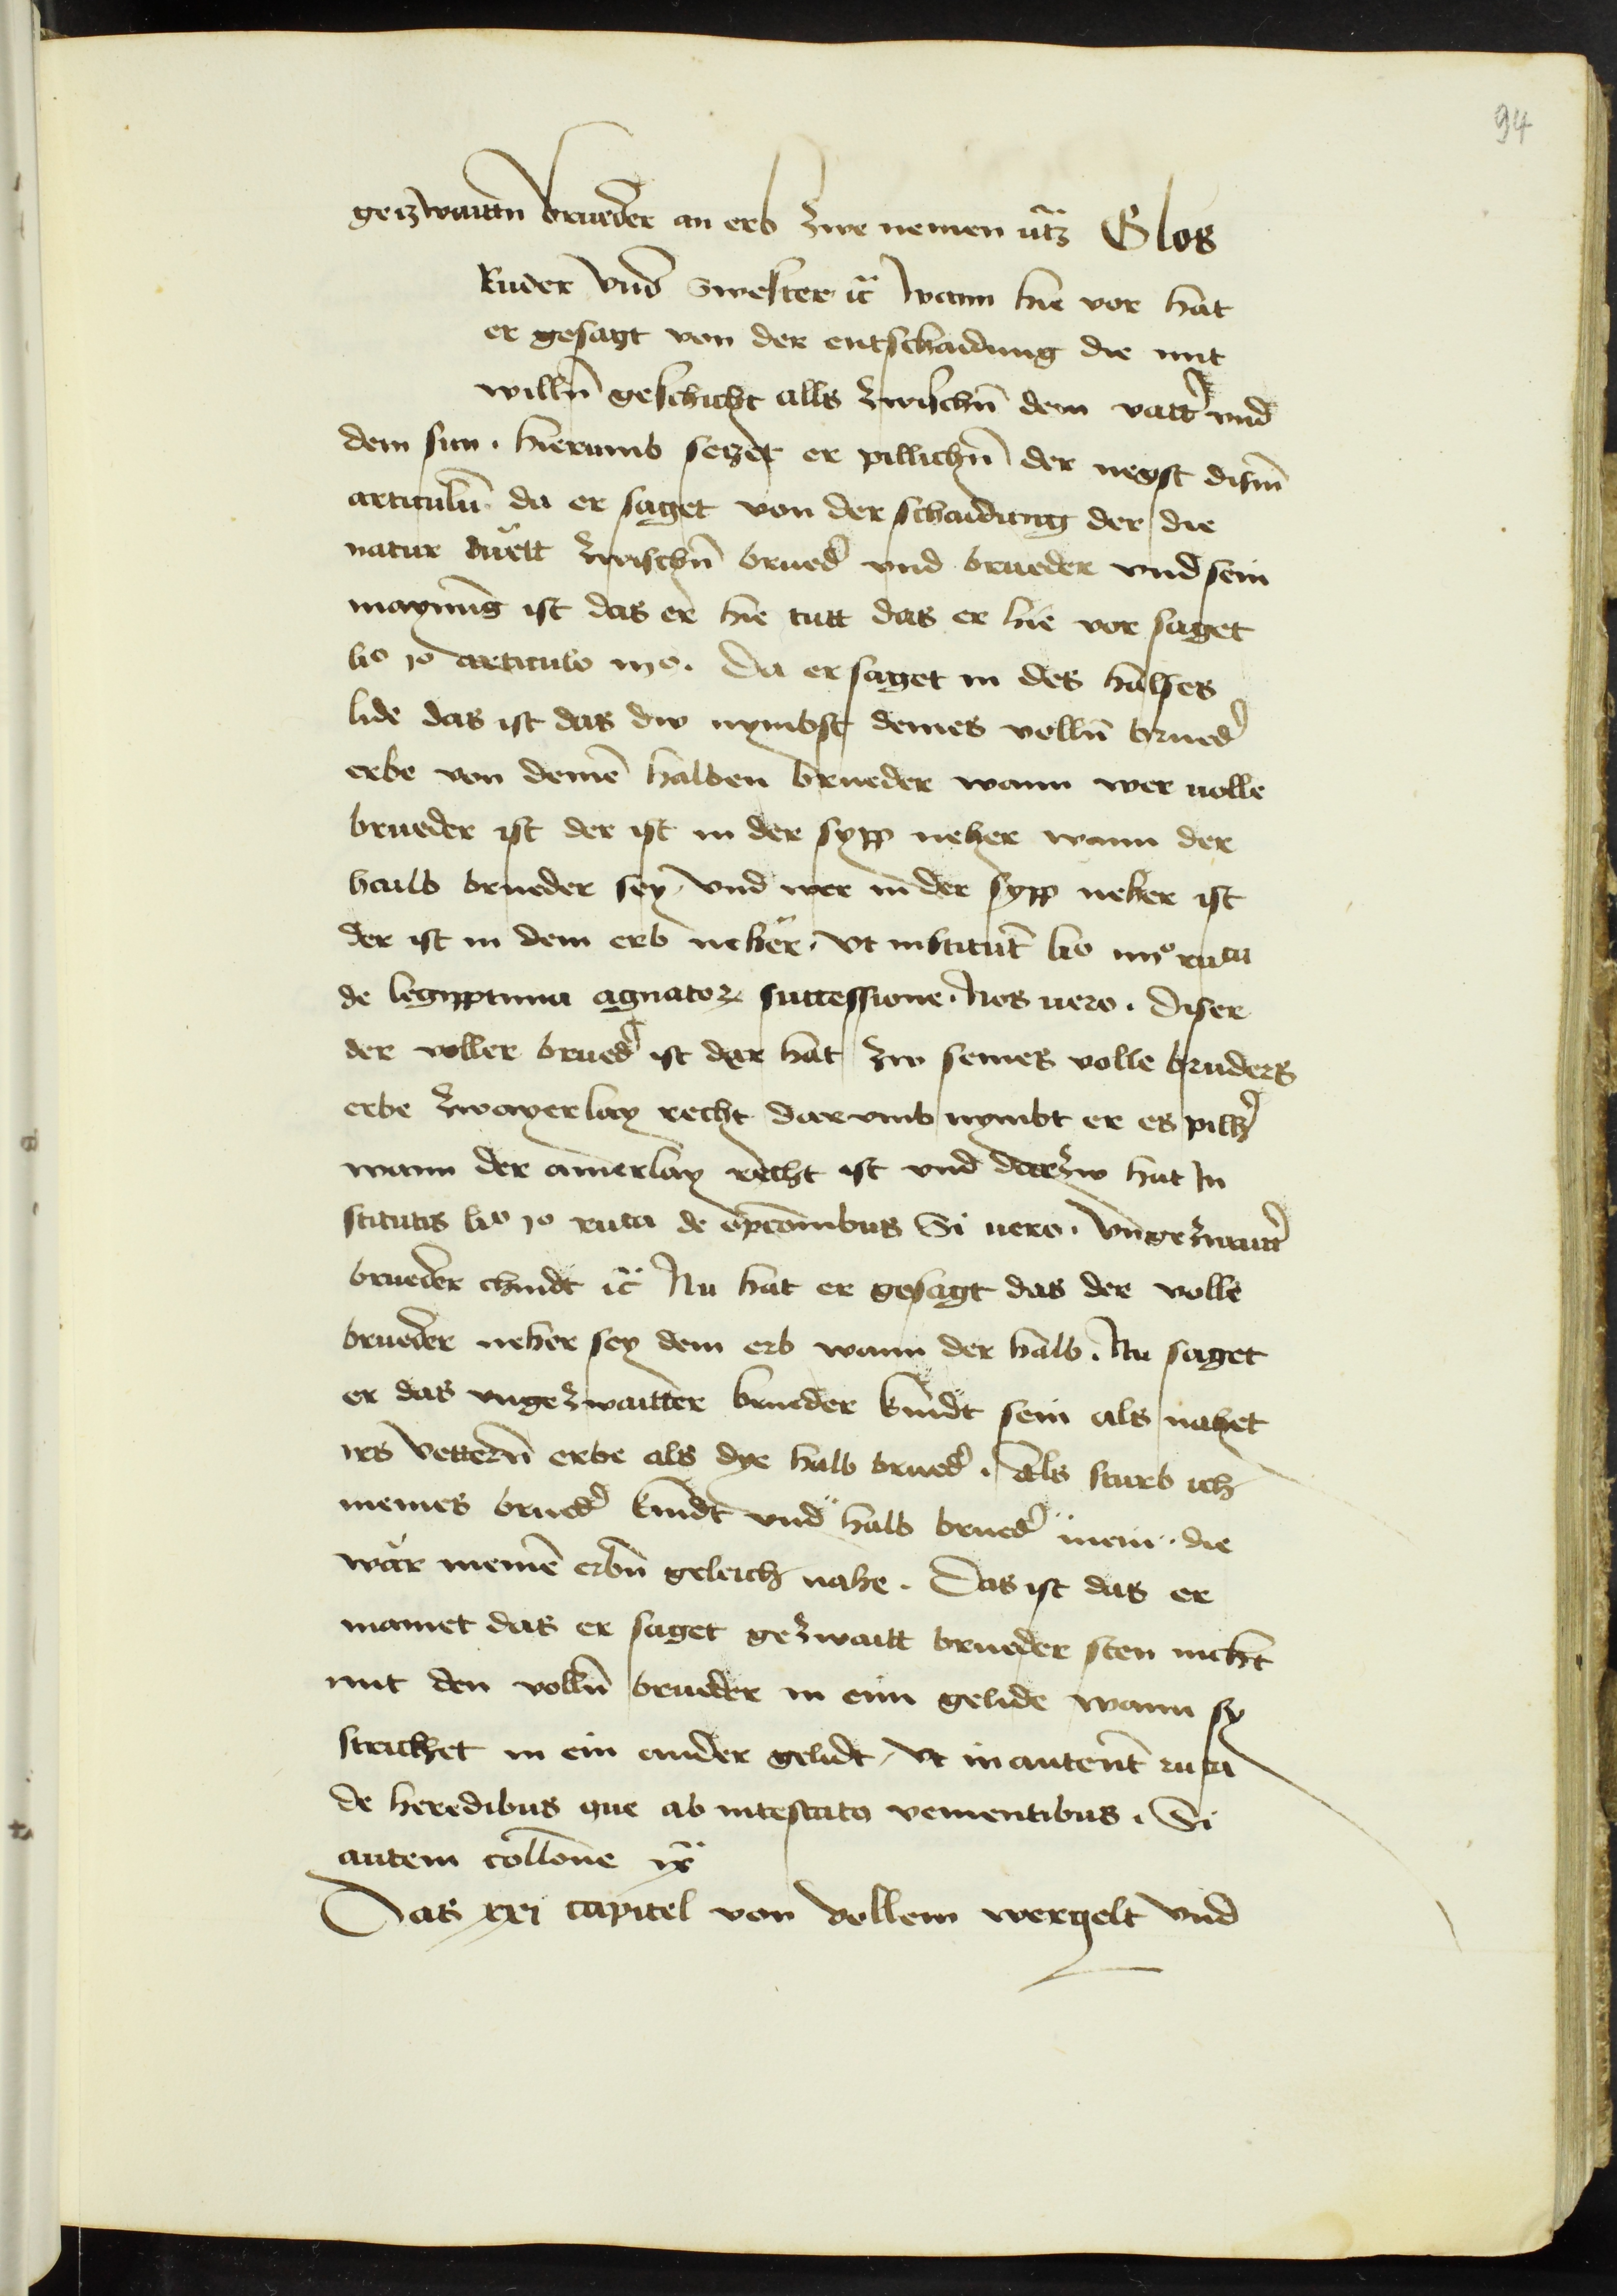 94
geczwaittn brueder an erb zwe nemen ut̃z Glos
Ruder vnd Swester ic̃ wann hie vor hat
er gesagt von der entschaidung die mit
willn̄ geschicht alls zwischn̄ dem vatt̾ vnd
dem sun . hierumb seczet er pillichn̄ der negst disen̄
articuln̄ da er saget von der schaidung der die
natur duett zwischn̄ brued̾ vnd brueder vnd sein
maynung ist das er hie tutt das er hie vor saget
lio jo articulo iijo . Da er saget in des halses
lide das ist das dw nymbst deines volln̄ brued̾
erbe von deinē halben brueder wann wer volle
brueder ist der ist in der sypp neher wann der
halb brueder sey vnd wer in der sypp neher ist
der ist in dem erb neher . vt institut̄ lio iiijo ruca
de legyptima agnatoꝝ successione . Nos uero . Diser
der voller brued̾ ist der hat zw seines volle bruders
erbe zwayerlay recht darvmb nymbt er es pillh̾
wann der ainerlay recht ist vnd darzw hat In
stitutis lio jo ruca de opc̄onibus Si uero . vngezwait̾
brueder chindt ic̃ Nu hat er gesagt das der volle
brueder neher sey dem erb wann der halb . Nu saget
er das vngezwaitter brueder kindt sein als nahet
irs vettern̄ erbe als dye halb brued̾ . Als starb ich
meines brued̾ kindt vnd halb brued̾ mein . die
wär meinē erbn̄ geleich nahe . Das ist das er
mainet das er saget gezwaitt brueder sten nicht
mit den volln̄ brueder in einn gelide wann sy
strickhet in ein ander gelidt . vt in autent̄ ruca
de heredibus que ab intestato venientibus . Si
autem collone ix̃
Das xxi capitel von vollem wergelt vnd